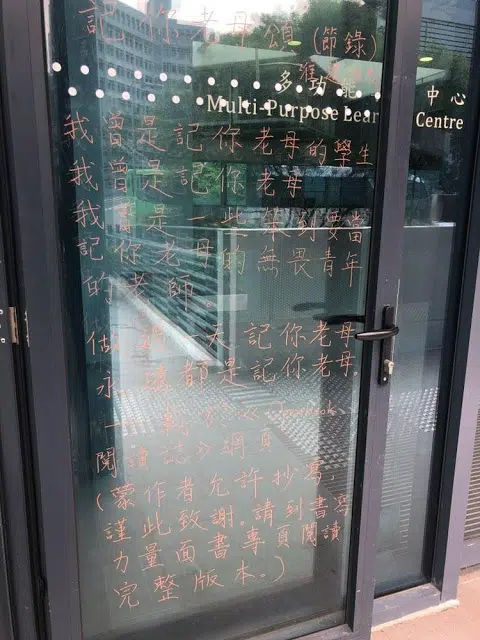 記你老母頌 (節錄)
多功能 中心
Multi-Purpose Lear Centre
我曾是記你老母的學生
我曾是記你老母
我曾是一些 到要當
記你老母的無畏青年
的老師。
做 一天記你老母
永遠都是記你老母。
閱讀 誌》網頁
(蒙作者允許抄寫,
謹此致謝。請到書寫
力量面書專頁閱讀
完整版本。)